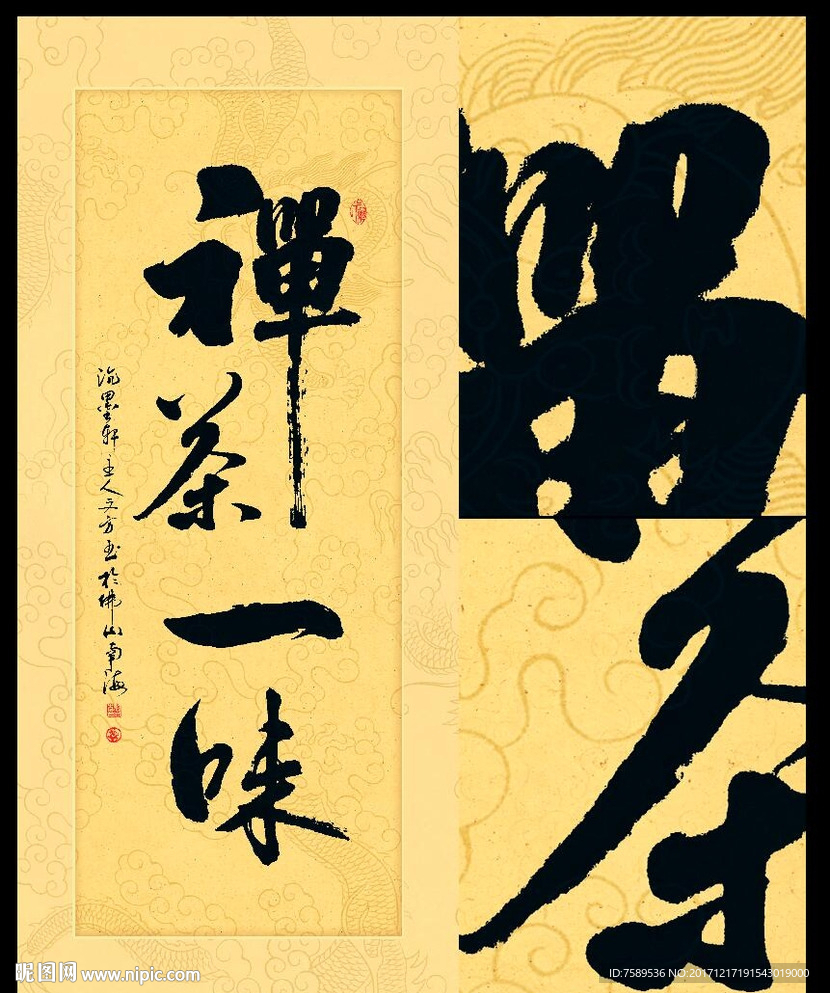 禪茶一味
沉墨軒主人文方玉於佛山南海
昵图网 www.nipic.com
ID:7589536 NO:20171217191543019000